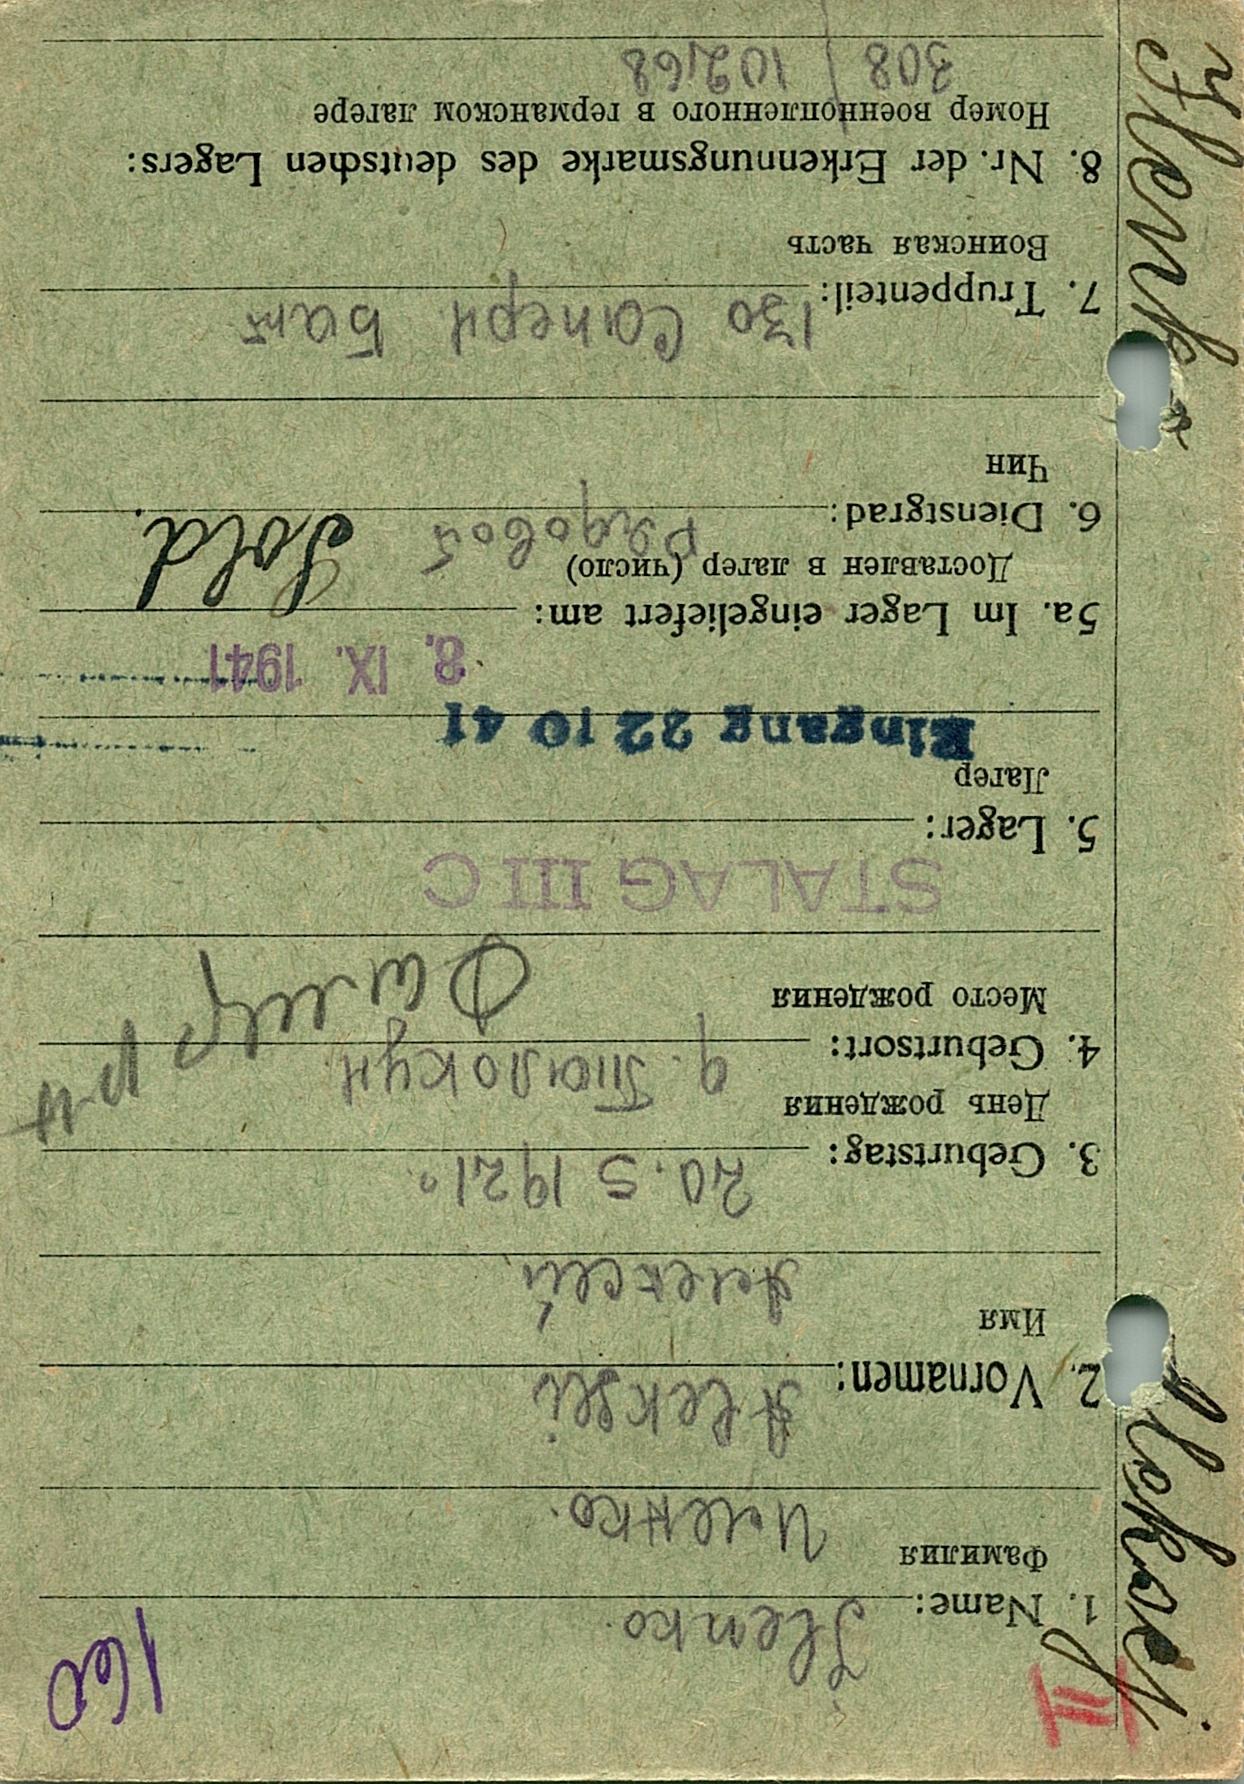 160
III
1. Name: Ilenko.
Фамилия
Иленко.
2. Vornamen: Aleksei
Имя
Алексей
3. Geburtstag: 20.5 1921
День рождения
4. Geburtsort: д.
Место рождения
STALAG III C
5. Lager:
Лагер
Eingang 22 10 41
8. IX. 1941
5a. Im Lager eingeliefert am:
Доставлен в лагер (число)
6. Dienstgrad: Рядовой Sold.
Чин
7. Truppenteil: 130 Саперн Бат
Воинская часть
8. Nr. der Erkennungsmarke des deutschen Lagers:
Номер военнопленного в германском лагере
308 / 10268
Aleksej